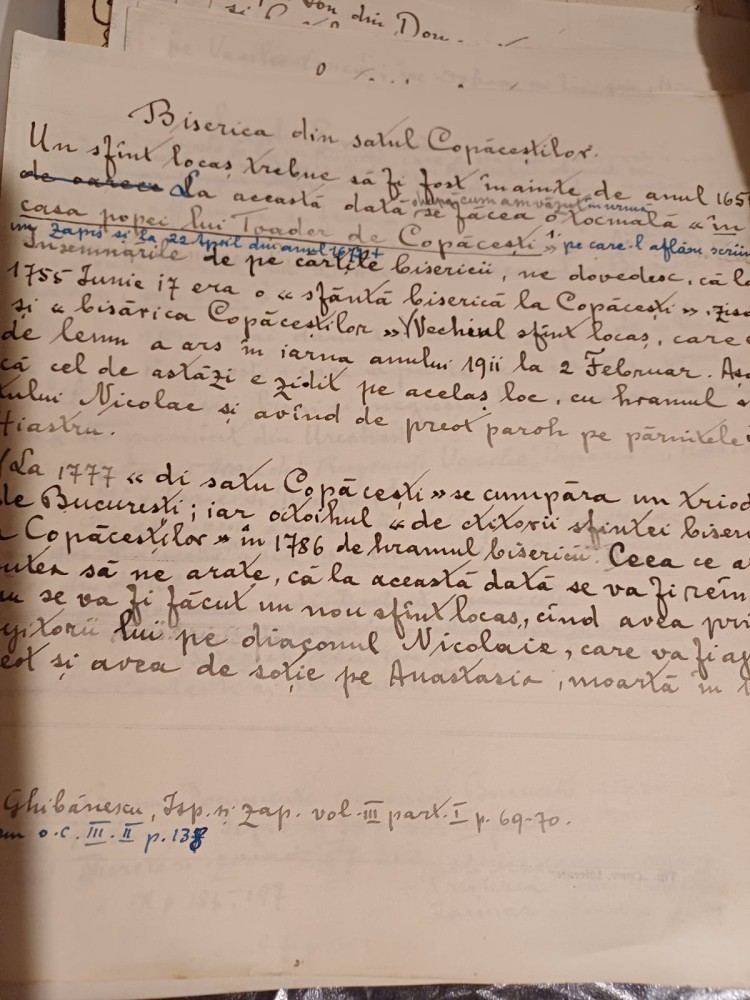 din Don
Biserica din satul Copăceștilor.
Un sfînt locaș trebue să fi fost înainte de anul 165
de oarece La această dată se făcea o tocmală « în
după cum am văzut în urmă
casa popei lui Toader de Copăcești » 1.
zapis și la 22 April din anul 1677 pe care-l aflăm scriin
Însemnările de pe cărțile bisericii, ne dovedesc, că la
1755 Iunie 17 era o « sfântă biserică la Copăcești »,
și « bisărica Copăceștilor » Vechiul sfînt locaș, care
de lemn a ars în iarna anului 1911 la 2 Februar. Aș
că cel de astăzi e zidit pe acelaș loc, cu hramul
tului Nicolae și avînd de preot paroh pe părintele
Hiastru.
La 1777 « di satu Copăcești » se cumpăra un triod
de București; iar octoihul « de ctitorii sfintei biseri
Copăceștilor » în 1786 de hramul bisericii. Ceea ce a
putea să ne arate, că la această dată se va fi reîn
au se va fi făcut un nou sfînt locaș, cînd avea pri
gitorii lui pe diaconul Nicolaie, care va fi
eot și avea de soție pe Anastasia, moartă în
Ghibănescu, Isp. și zap. vol. III part. I p. 69-70.
o.c. III. II p. 138